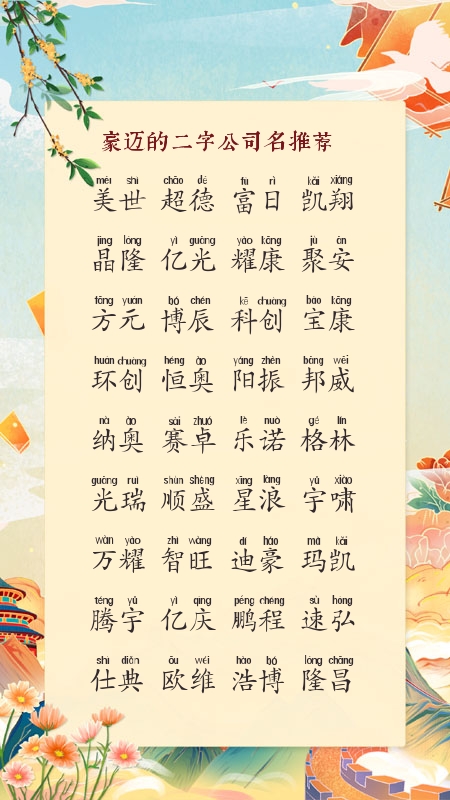 豪迈的二字公司名推荐
měi shì chāo dé fù rì kǎi xiáng
美世 超德 富日 凯翔
jīng lóng yì guāng yào kāng jù ān
晶隆 亿光 耀康 聚安
fāng yuán bó chén kē chuàng bǎo kāng
方元 博辰 科创 宝康
huán chuàng héng ào yáng zhèn bāng wēi
环创 恒奥 阳振 邦威
nà ào sài zhuó lè nuò gé lín
纳奥 赛卓 乐诺 格林
guāng ruì shùn shèng xīng làng yǔ xiào
光瑞 顺盛 星浪 宇啸
wàn yào zhì wàng dí háo mǎ kǎi
万耀 智旺 迪豪 玛凯
téng yǔ yì qìng péng chéng sù hóng
腾宇 亿庆 鹏程 速弘
shì diǎn ōu wéi hào bó lóng chāng
仕典 欧维 浩博 隆昌